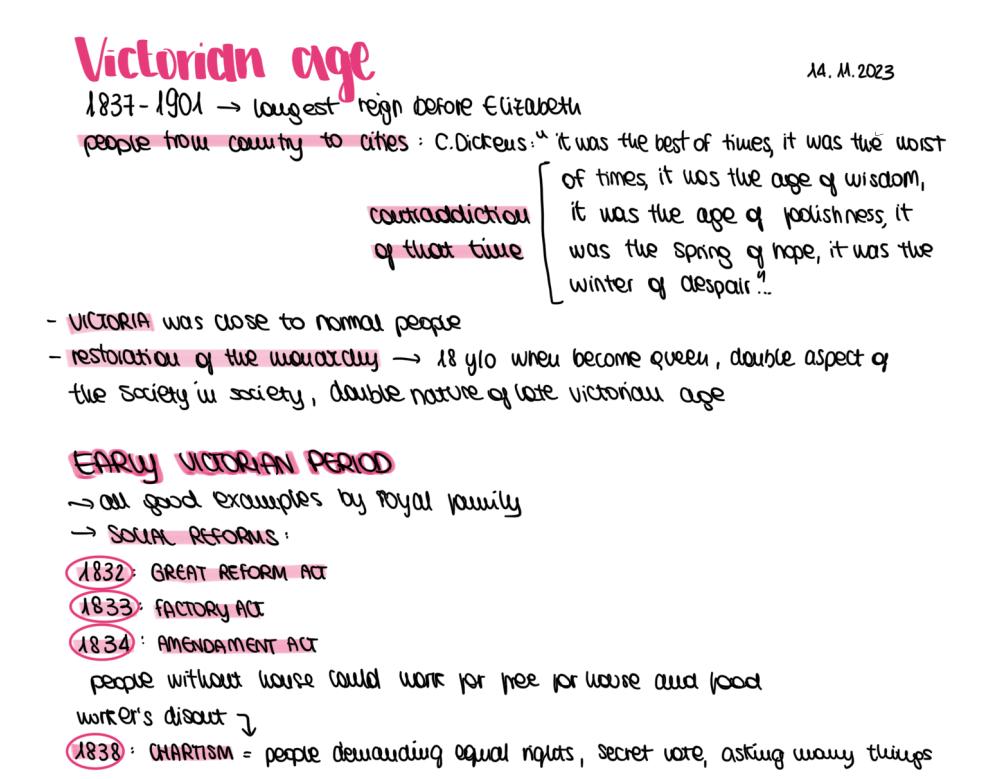 Victorian age
14.11.2023
1837-1901 → longest reign before Elizabeth
people from country to cities : C.Dickens: "it was the best of times, it was the worst
of times, it was the age of wisdom,
contraddiction it was the age of polishness, it
of that time was the spring of hope, it was the
winter of despair"...
- VICTORIA was close to normal people
- restoration of the monarchy → 18 y/o when become queen, double aspect of
the society in society, double nature of late victorian age
EARLY VICTORIAN PERIOD
→ all good examples by royal family
→ SOCIAL REFORMS:
1832: GREAT REFORM ACT
1833: FACTORY ACT
1834: AMENDAMENT ACT
people without house could work for free for house and food
worker's disout ↴
1838: CHARTISM = people demanding equal rights, secret vote, asking many things